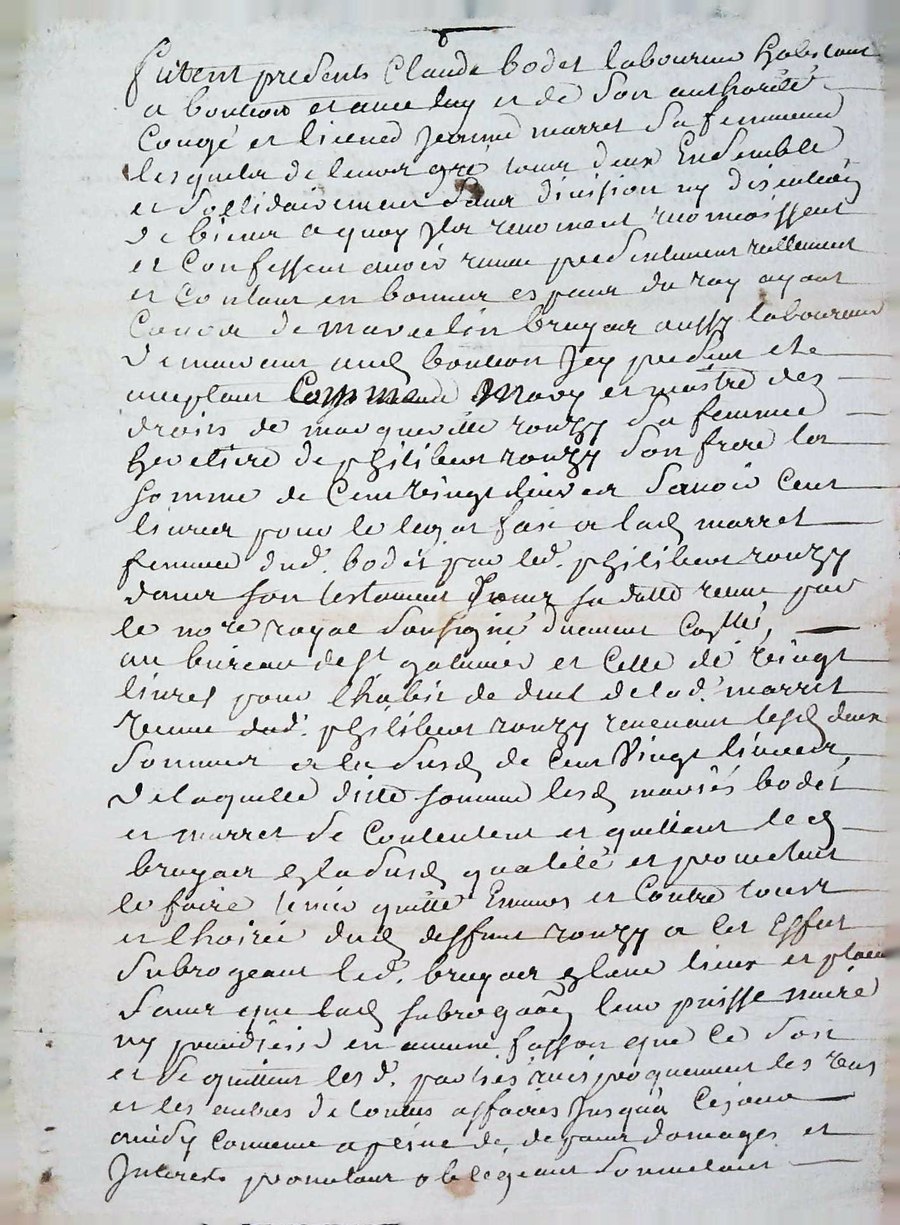 furent presents Claude bodet laboureur habitant
a bontson et avec luy et de son authorité
Congé et licence Jeanne marret sa femme
lesquels de leur gré tous deux Ensemble
et sollidairement sans division ny discution
de biens a quoy Ils renoncent reconnoissent
et Confessent avoir receu presentement reellement
et Contant en bonnes especes du roy ayant
Cours de marcelin bruyas aussy laboureur
demeurant aud bontson Icy present et
acceptant Comme Mary et maitre des
droits de marguerite ronzy sa femme
heretiere de philibert ronzy son frere la
somme de Cent vingt livres savoir Cent
livres pour le legat fait a lad marret
femme dud. bodet par led. philibert ronzy
dans son testament sa datte receu par
le no.re royal soussigné duement Collé,
au bureau de st galmier et Celle de vingt
livres pour lhabit de deuil de lad. marret
veuve dud. philibert ronzy revenant lesd deux
sommes a la susd de Cent Vingt livres
de laquelle ditte somme lesd mariés bodet
et marret se Contentent et quittent led
bruyas esla susd qualité et promettent
le faire tenir quitte Envers et Contre tous
et lhoirie dud deffunt ronzy a les Effet
subrogeant led. bruyas eleur lieux et place
sans que lad subrogaon leur puisse nuire
ny prejudicié en aucune fasson que Ce soit
et se quittent lesd. parties reciproquement les uns
et les autres de toutes affaires Jusqua Cejour
ainsy Convenu a peine de depans domages et
Interets promettant obligeant soumettant